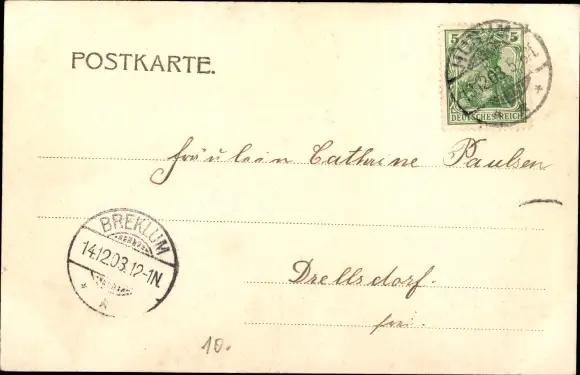 POSTKARTE.
5 5
DEUTSCHES REICH
13.12.03
Fräulein Cathrine Paulsen
BREKLUM
14.12.03.12-1N.
*
*
Drellsdorf.
frei.
10.